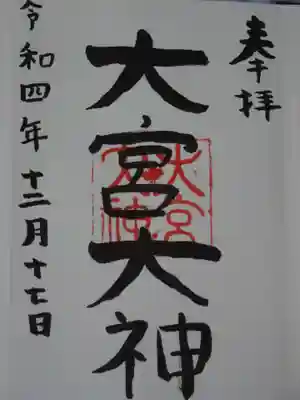 奉拝
大宮大神
大宮大神
令和四年十二月十七日